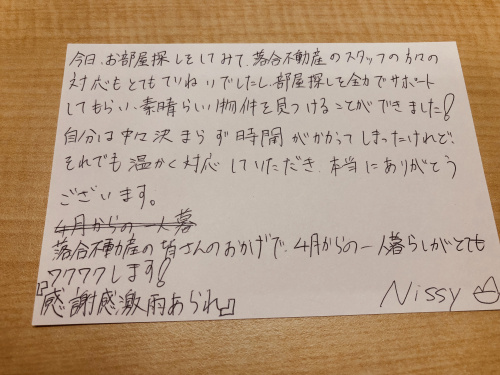 今日、お部屋探しをしてみて、落合不動産のスタッフの方々の
対応もとてもていねいでしたし、部屋探しを全力でサポート
してもらい、素晴らしい物件を見つけることができました!
自分は中々決まらず時間がかかってしまったけれど、
それでも温かく対応していただき、本当にありがとう
ございます。
4月からの一人暮
落合不動産の皆さんのおかげで、4月からの一人暮らしがとても
ワクワクします!
『感謝感激雨あられ』
Nissy